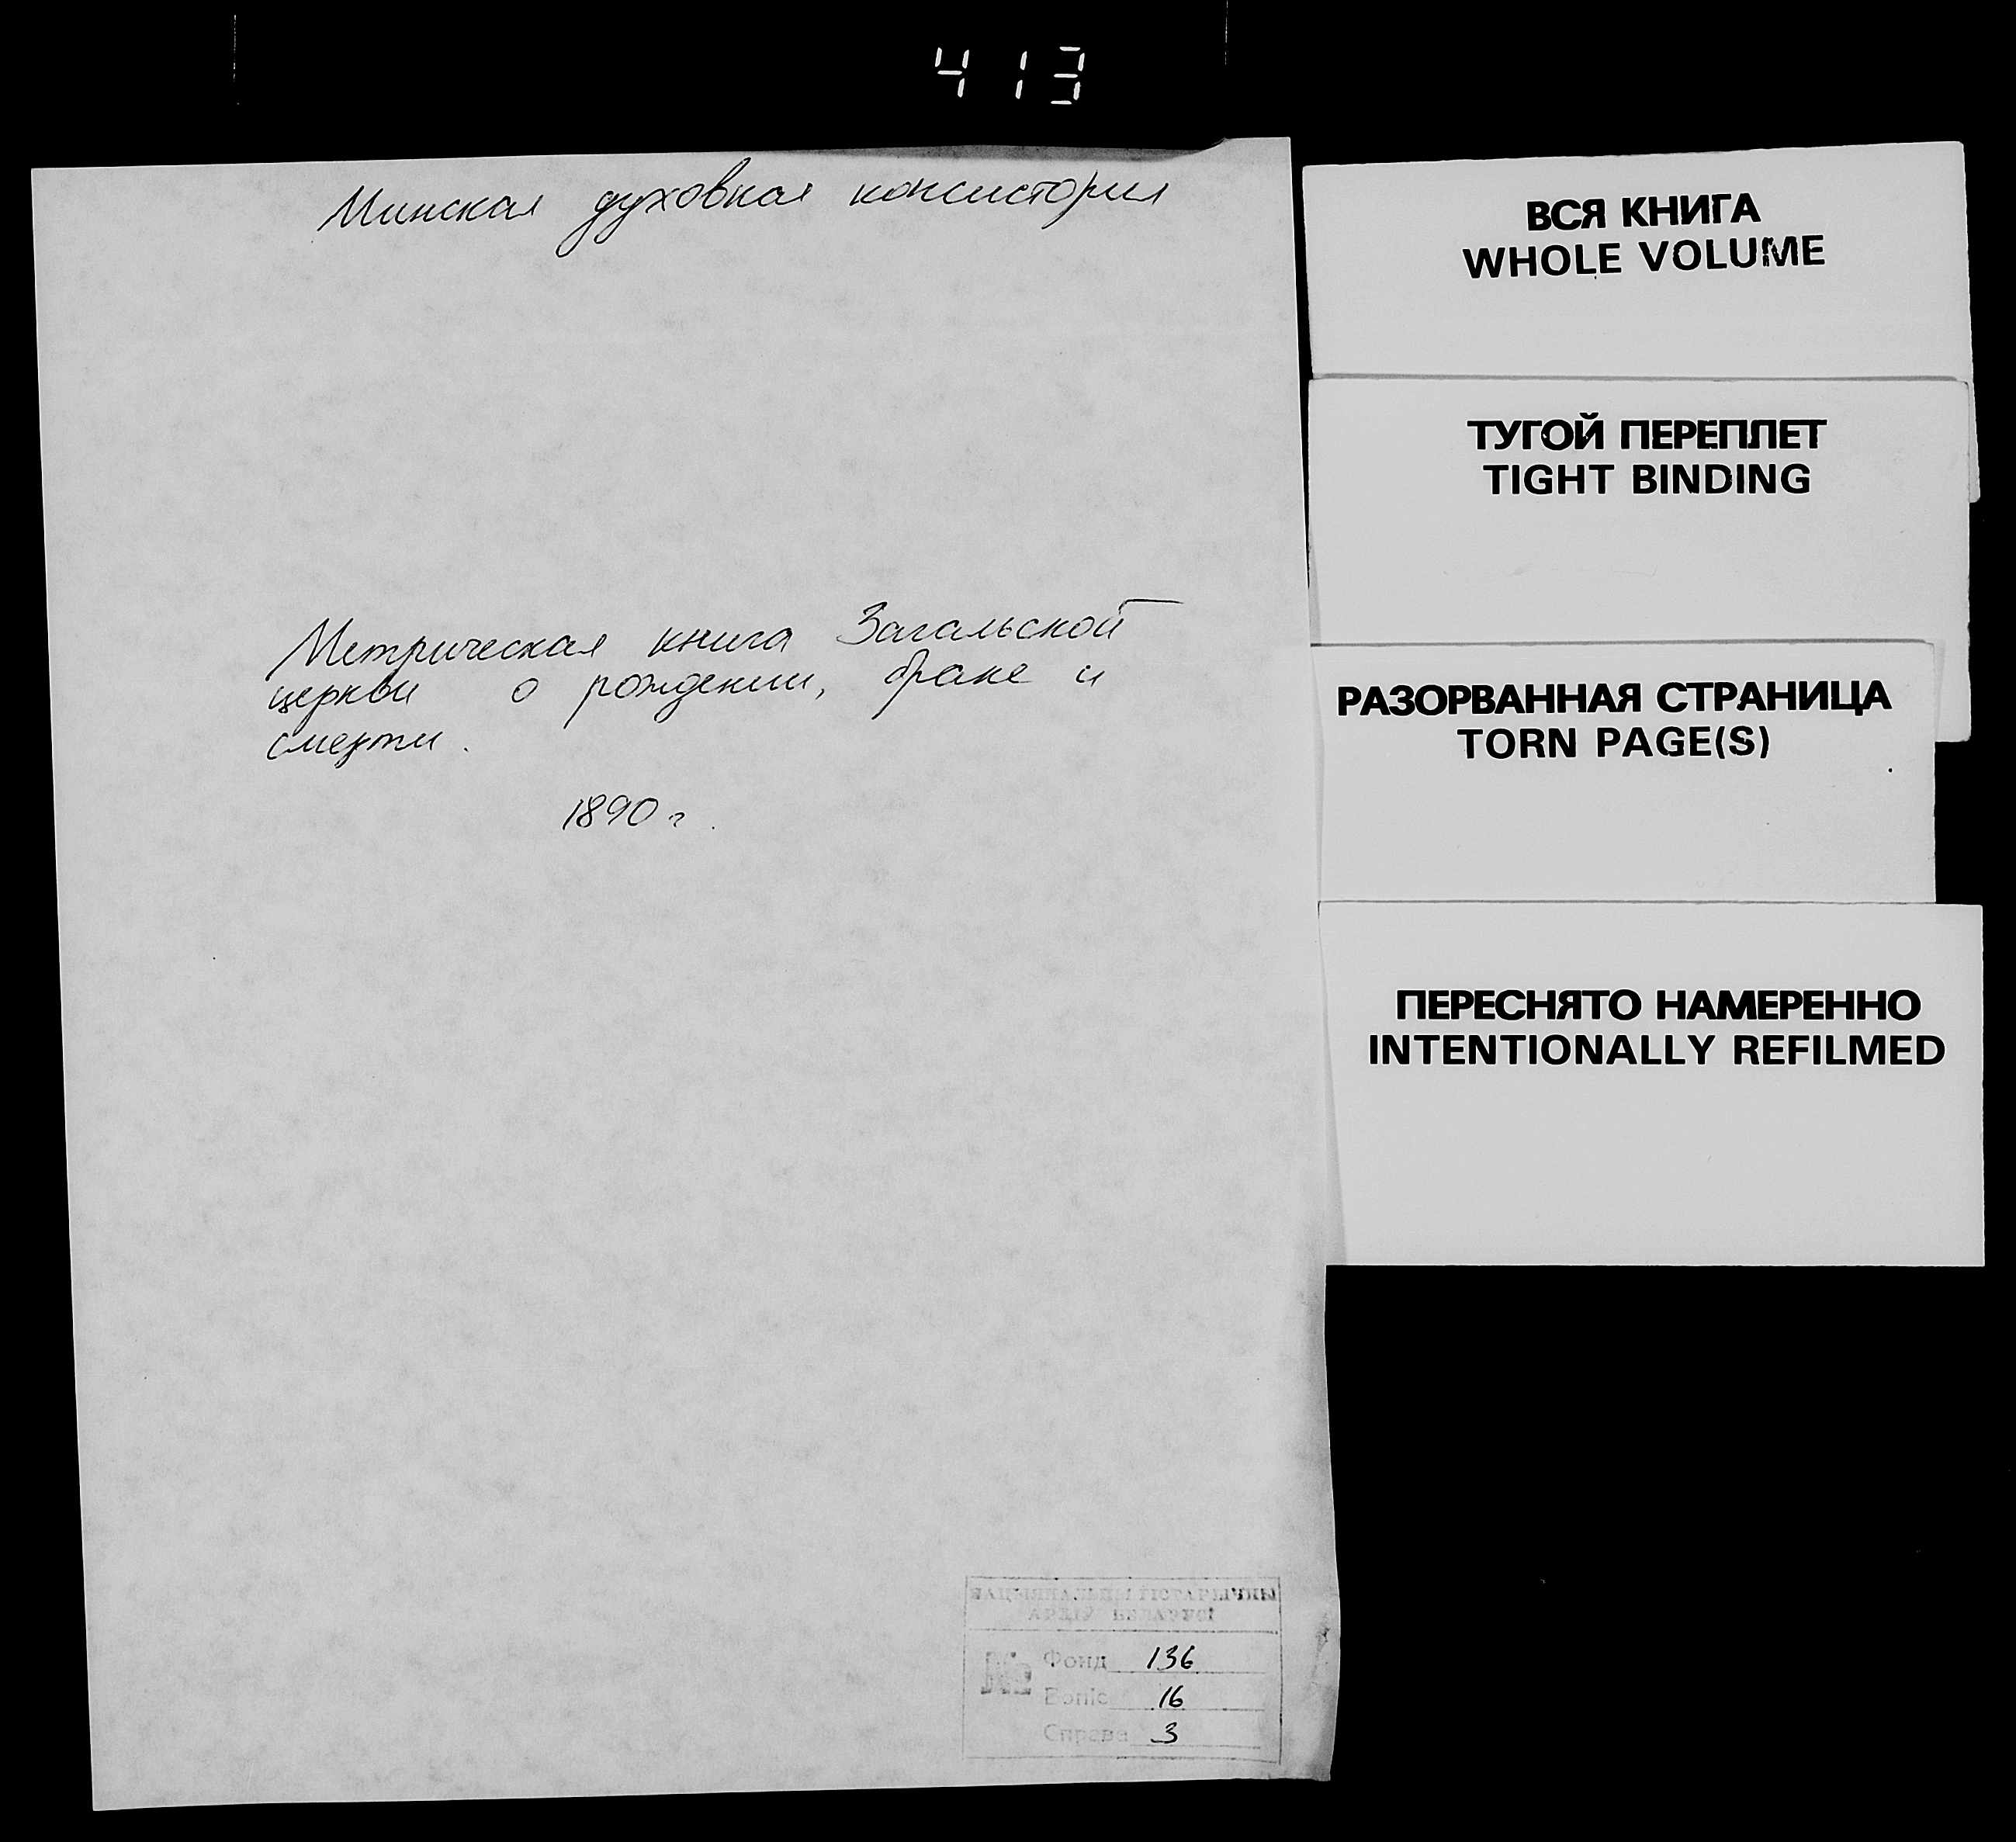 413
Минская духовная консистория
Метрическая книга Загальской
церкви о рождении, браке и
смерти.
1890 г.
НАЦЫЯНАЛЬНЫ ГІСТАРЫЧНЫ
АРХІЎ БЕЛАРУСІ
Фонд 136
Вопіс 16
Справа 3
ВСЯ КНИГА
WHOLE VOLUME
ТУГОЙ ПЕРЕПЛЕТ
TIGHT BINDING
РАЗОРВАННАЯ СТРАНИЦА
TORN PAGE(S)
ПЕРЕСНЯТО НАМЕРЕННО
INTENTIONALLY REFILMED